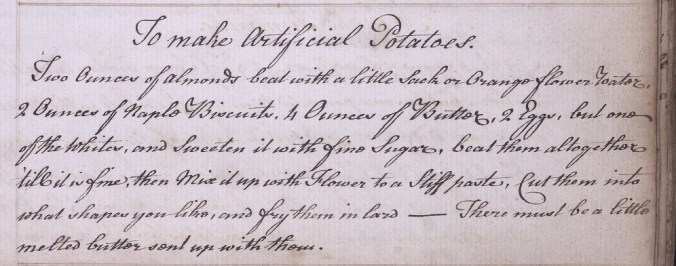 To make Artificial Potatoes.
Two Ounces of almonds beat with a little Sack or Orange flower Water,
2 Ounces of Naple Biscuits, 4 Ounces of Butter, 2 Eggs, but one
of the Whites, and Sweeten it with fine Sugar, beat them altogether
till it is fine, then Mix it up with Flower to a Stiff paste, Cut them into
what shapes you like, and fry them in lard — There must be a little
melted butter sent up with them.